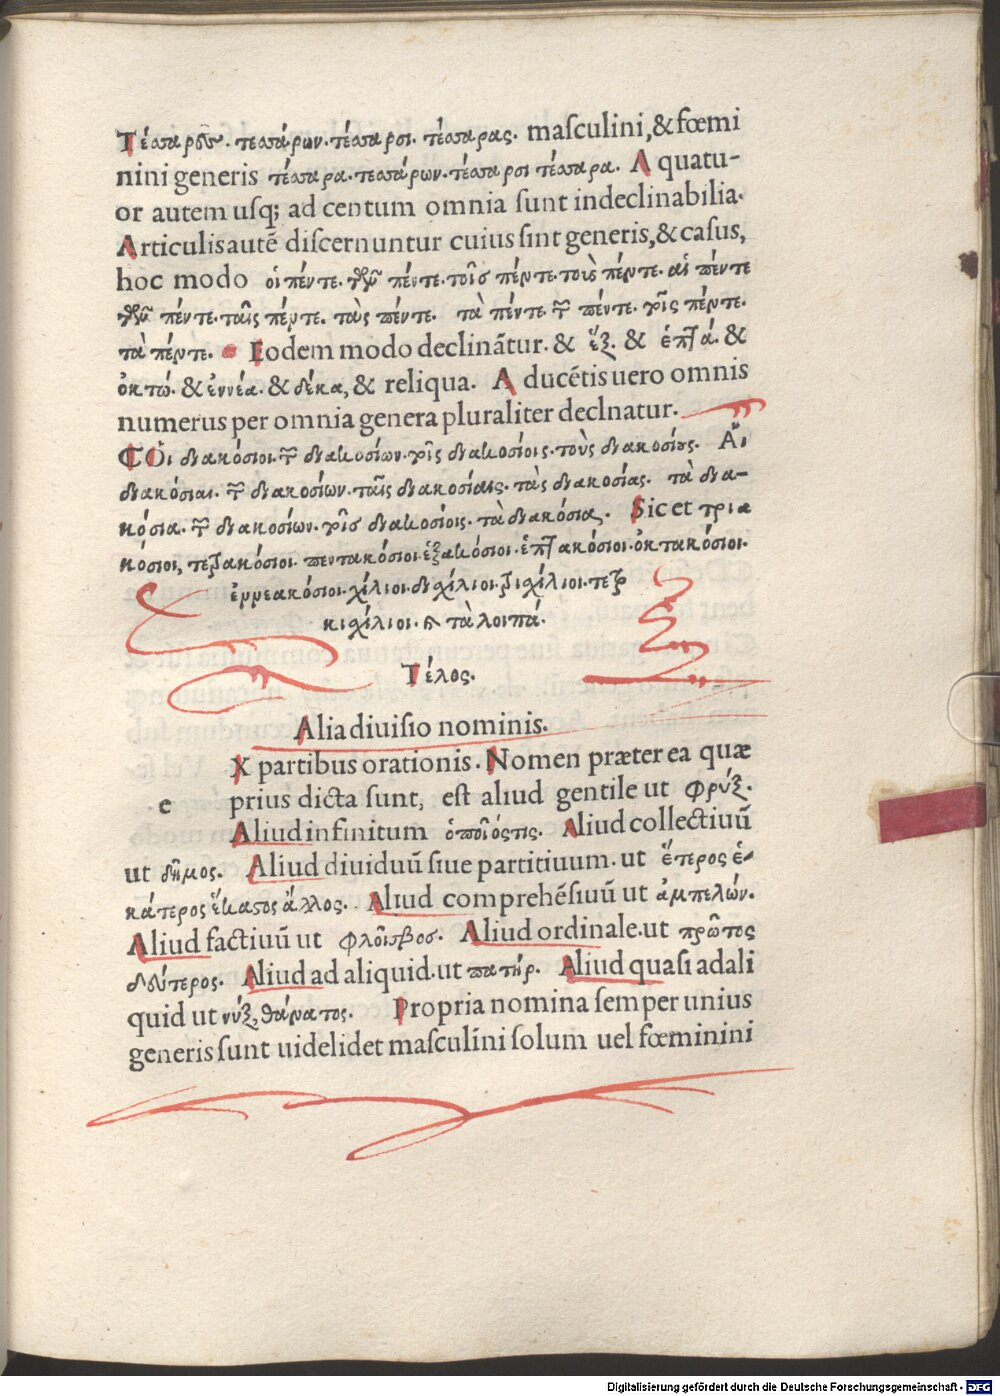 Τέσσαρες. τεσσάρων. τέσσαρσι. τέσσαρας. masculini, & fœmi
nini generis τέσσαρα. τεσσάρων. τέσσαρσι τέσσαρα. A quatu-
or autem uſq; ad centum omnia ſunt indeclinabilia.
Articulis autē diſcernuntur cuius ſint generis, & caſus,
hoc modo οἱ πέντε. τῶν πέντε. τοῖσ πέντε. τοὺσ πέντε. αἱ πέντε
τῶν πέντε. ταῖς πέντε. τὰς πέντε. τὰ πέντε. τῶν πέντε. τοῖς πέντε.
τὰ πέντε. Eodem modo declinãtur. & ἕξ. & ἑπτά. &
ὀκτώ. & ἐννέα. & δέκα, & reliqua. A ducētis uero omnis
numerus per omnia genera pluraliter declnatur.
Οἱ διακόσιοι. τῶν διακοσίων. τοῖς διακοσίοις. τοὺς διακοσίους. Αἱ
διακόσιαι. τῶν διακοσίων. ταῖς διακοσίαις. τὰς διακοσίας. τὰ δια-
κόσια. τῶν διακοσίων. τοῖσ διακοσίοις. τὰ διακόσια. Sic et τρια
κόσιοι, τετρακόσιοι. πεντακόσιοι. ἑξακόσιοι. ἑπτακόσιοι. ὀκτακόσιοι.
ἐννεακόσιοι. χίλιοι. διχίλιοι. τριχίλιοι. τετρ
κιχίλιοι. & τὰ λοιπά.
Τέλος.
Alia diuiſio nominis.
X partibus orationis. Nomen præter ea quæ
e prius dicta ſunt, eſt aliud gentile ut φρύξ.
Aliud infinitum ὁποῖόςτις. Aliud collectiuū
ut δῆμος. Aliud diuiduū ſiue partitiuum. ut ἕτερος ἑ-
κάτερος ἕκαστος ἄλλος. Aliud comprehēſiuū ut ἀμπελών.
Aliud factiuū ut φλοῖσβοσ. Aliud ordinale. ut πρῶτος
δεύτερος. Aliud ad aliquid. ut πατήρ. Aliud quaſi ad ali
quid ut νύξ, θάνατος. Propria nomina ſemper unius
generis ſunt uidelidet maſculini ſolum uel fœminini
Digitalisierung gefördert durch die Deutsche Forschungsgemeinschaft - DFG